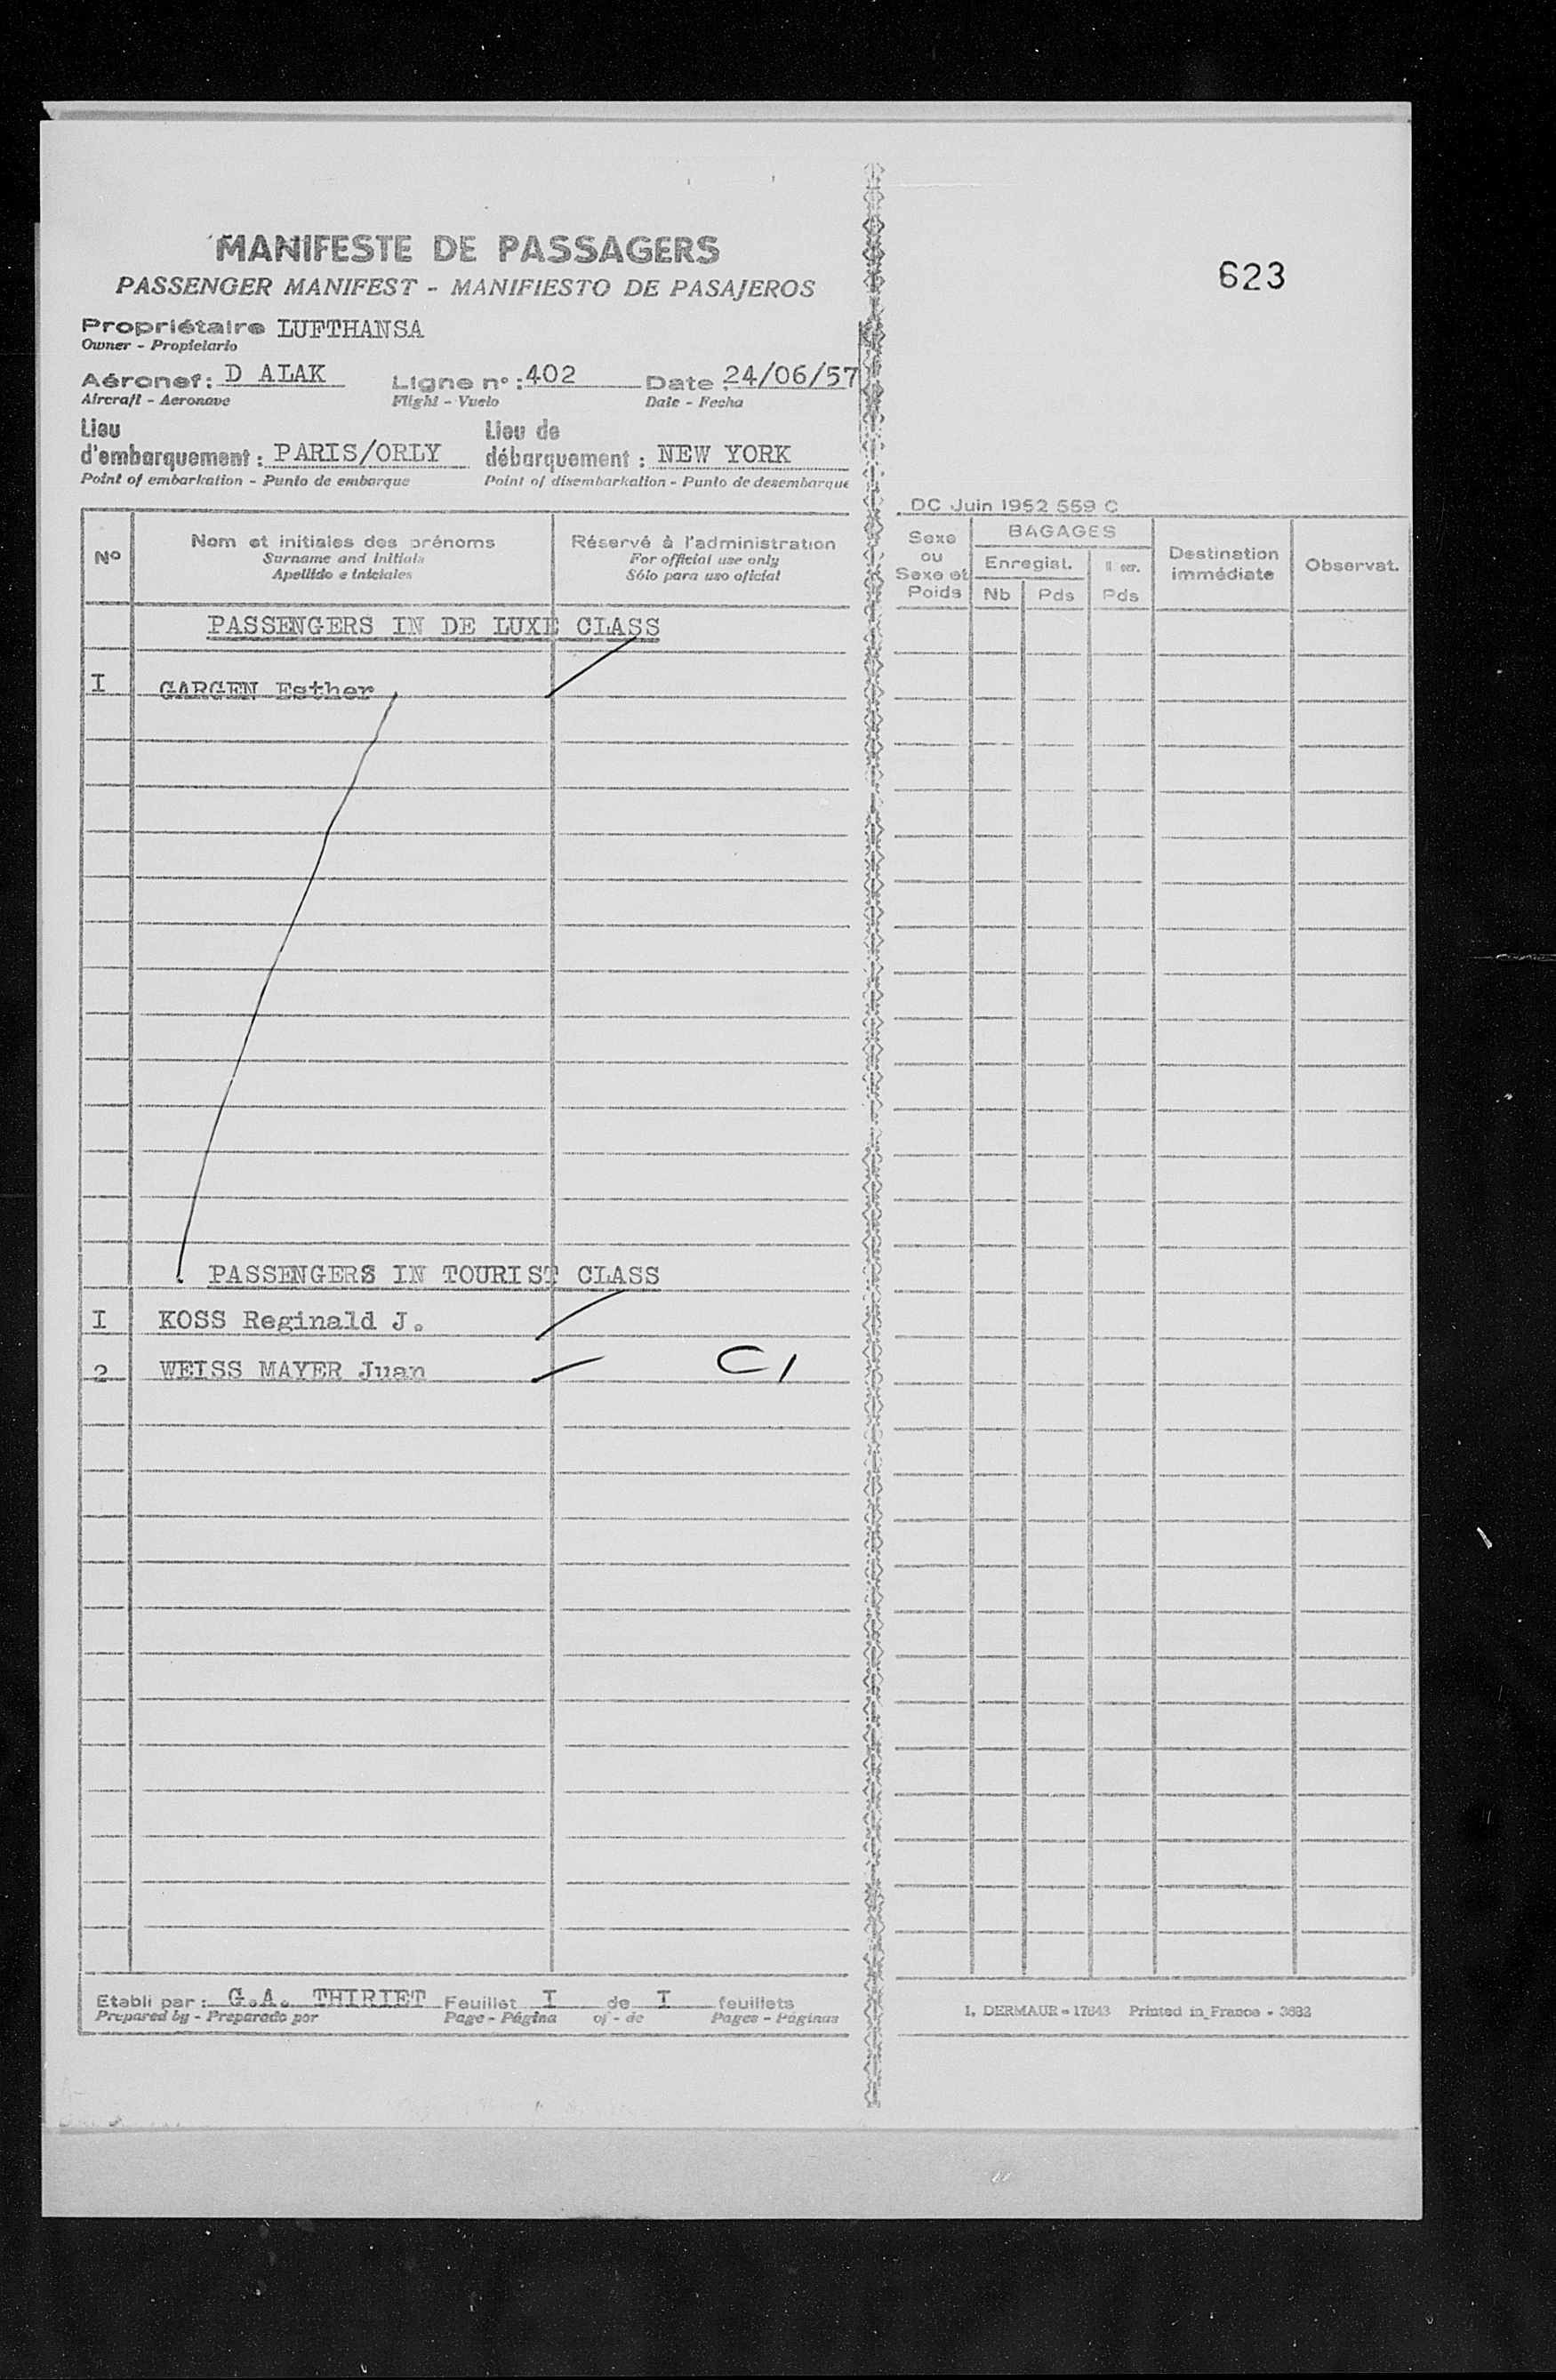 MANIFESTE DE PASSAGERS
PASSENGER MANIFEST - MANIFIESTO DE PASAJEROS
623
Propriétaire LUFTHANSA
Owner - Propietario
Aéronef: D ALAK Ligne n° : 402 Date : 24/06/57
Aircraft - Aeronave Flight - Vuelo Date - Fecha
Lieu d'embarquement : PARIS/ORLY Lieu de débarquement : NEW YORK
Point of embarkation - Punto de embarque Point of disembarkation - Punto de desembarque
DC Juin 1952 559 C
Nº
Nom et initiales des prénoms
Surname and initials
Apellido e iniciales
Réservé à l'administration
For official use only
Sólo para uso oficial
Sexe
ou
Sexe et
Poids
BAGAGES
Enregist.
Nb Pds Pds
Destination
immédiate
Observat.
PASSENGERS IN DE LUXE CLASS
I GARGEN Esther
PASSENGERS IN TOURIST CLASS
I KOSS Reginald J.
2 WEISS MAYER Juan C1
Etabli par : G.A. THIRIET Feuillet I de I feuillets
Prepared by - Preparado por Page - Página of - de Pages - Páginas
I. DERMAUR - 17643 Printed in France - 3632